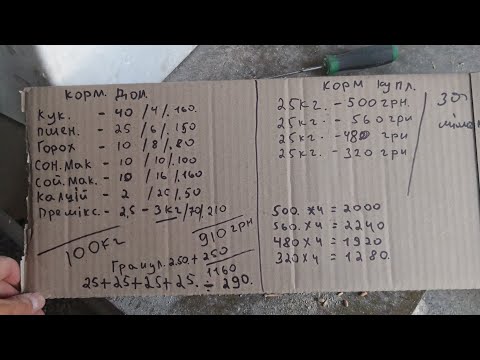 КОРМ. ДОМ.
Кук. - 40 /4/.160.
Пшен. - 25 /6/.150
Горох - 10 /8/.80
Сон.мак - 10 /10/.100
Сой.мак. - 10 /16/.160
Калций - 2 /25/.50
Премікс. - 2,5 - 3кг/70/.210
100кг
910 грн
Гранул. 2.50 + 250
1160
25+25+25+25. ÷ 290.
КОРМ КУПЛ.
25кг. - 500 грн.
25кг. - 560 грн
25кг. - 480 грн
25кг. - 320 грн
500. *4 = 2000
560. *4 = 2240
480 x 4 = 1920
320 x 4 = 1280.